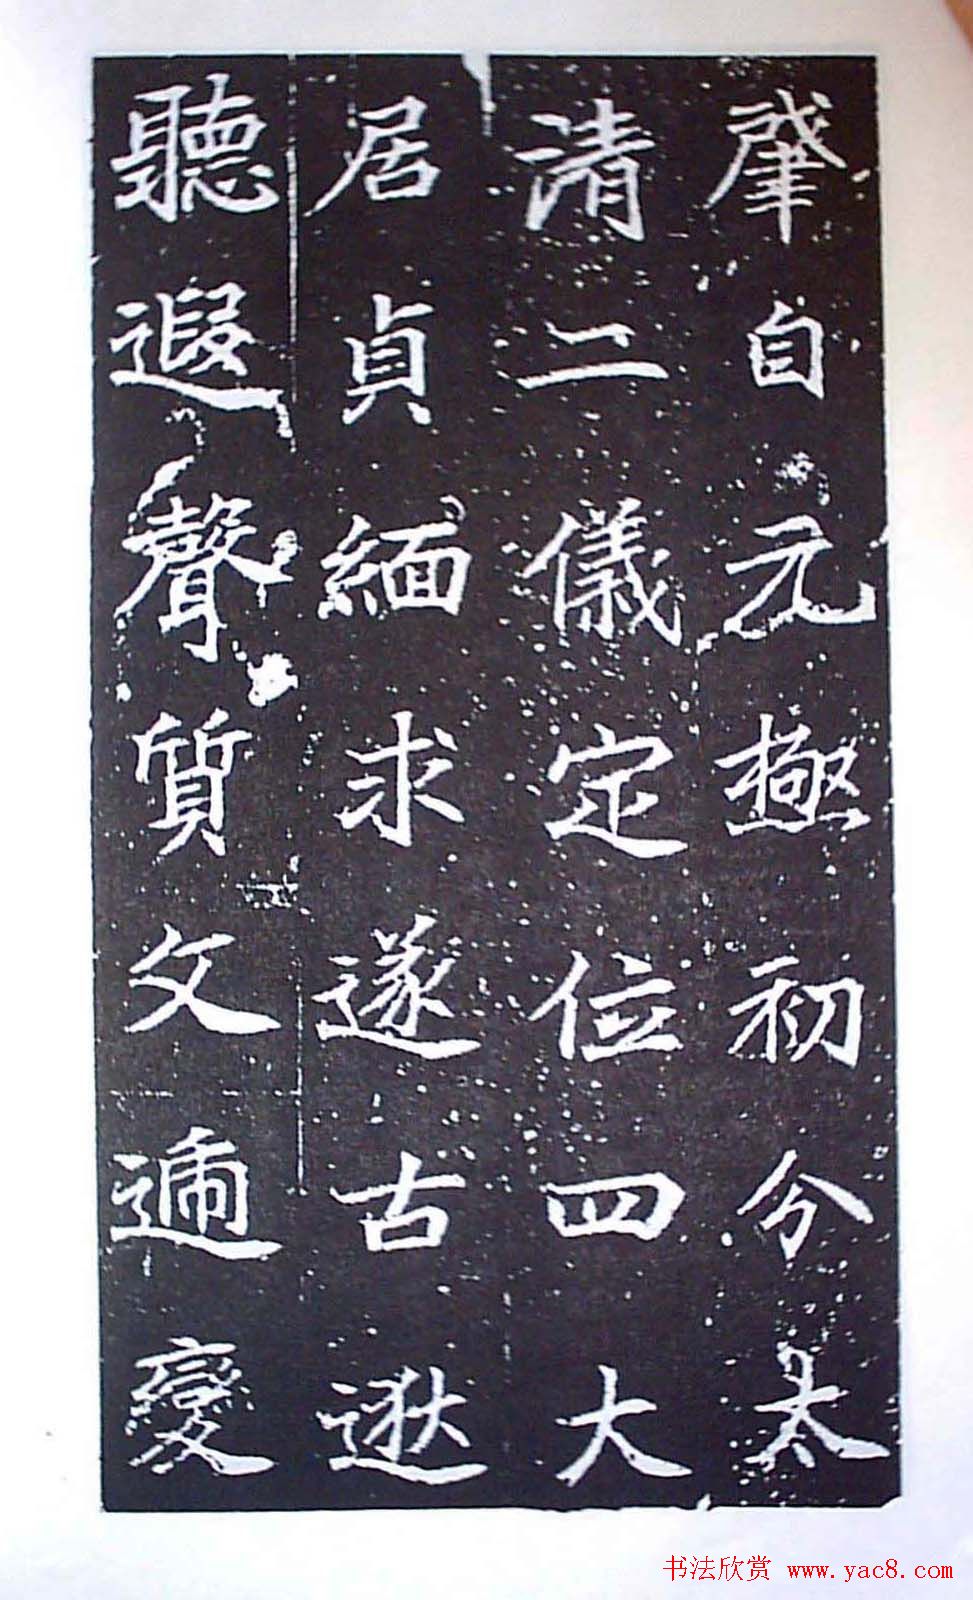 肈自元極初分太
清二儀定位四大
居貞緬求邃古逖
聽遐聲質文遞變
书法欣赏 www.yac8.com